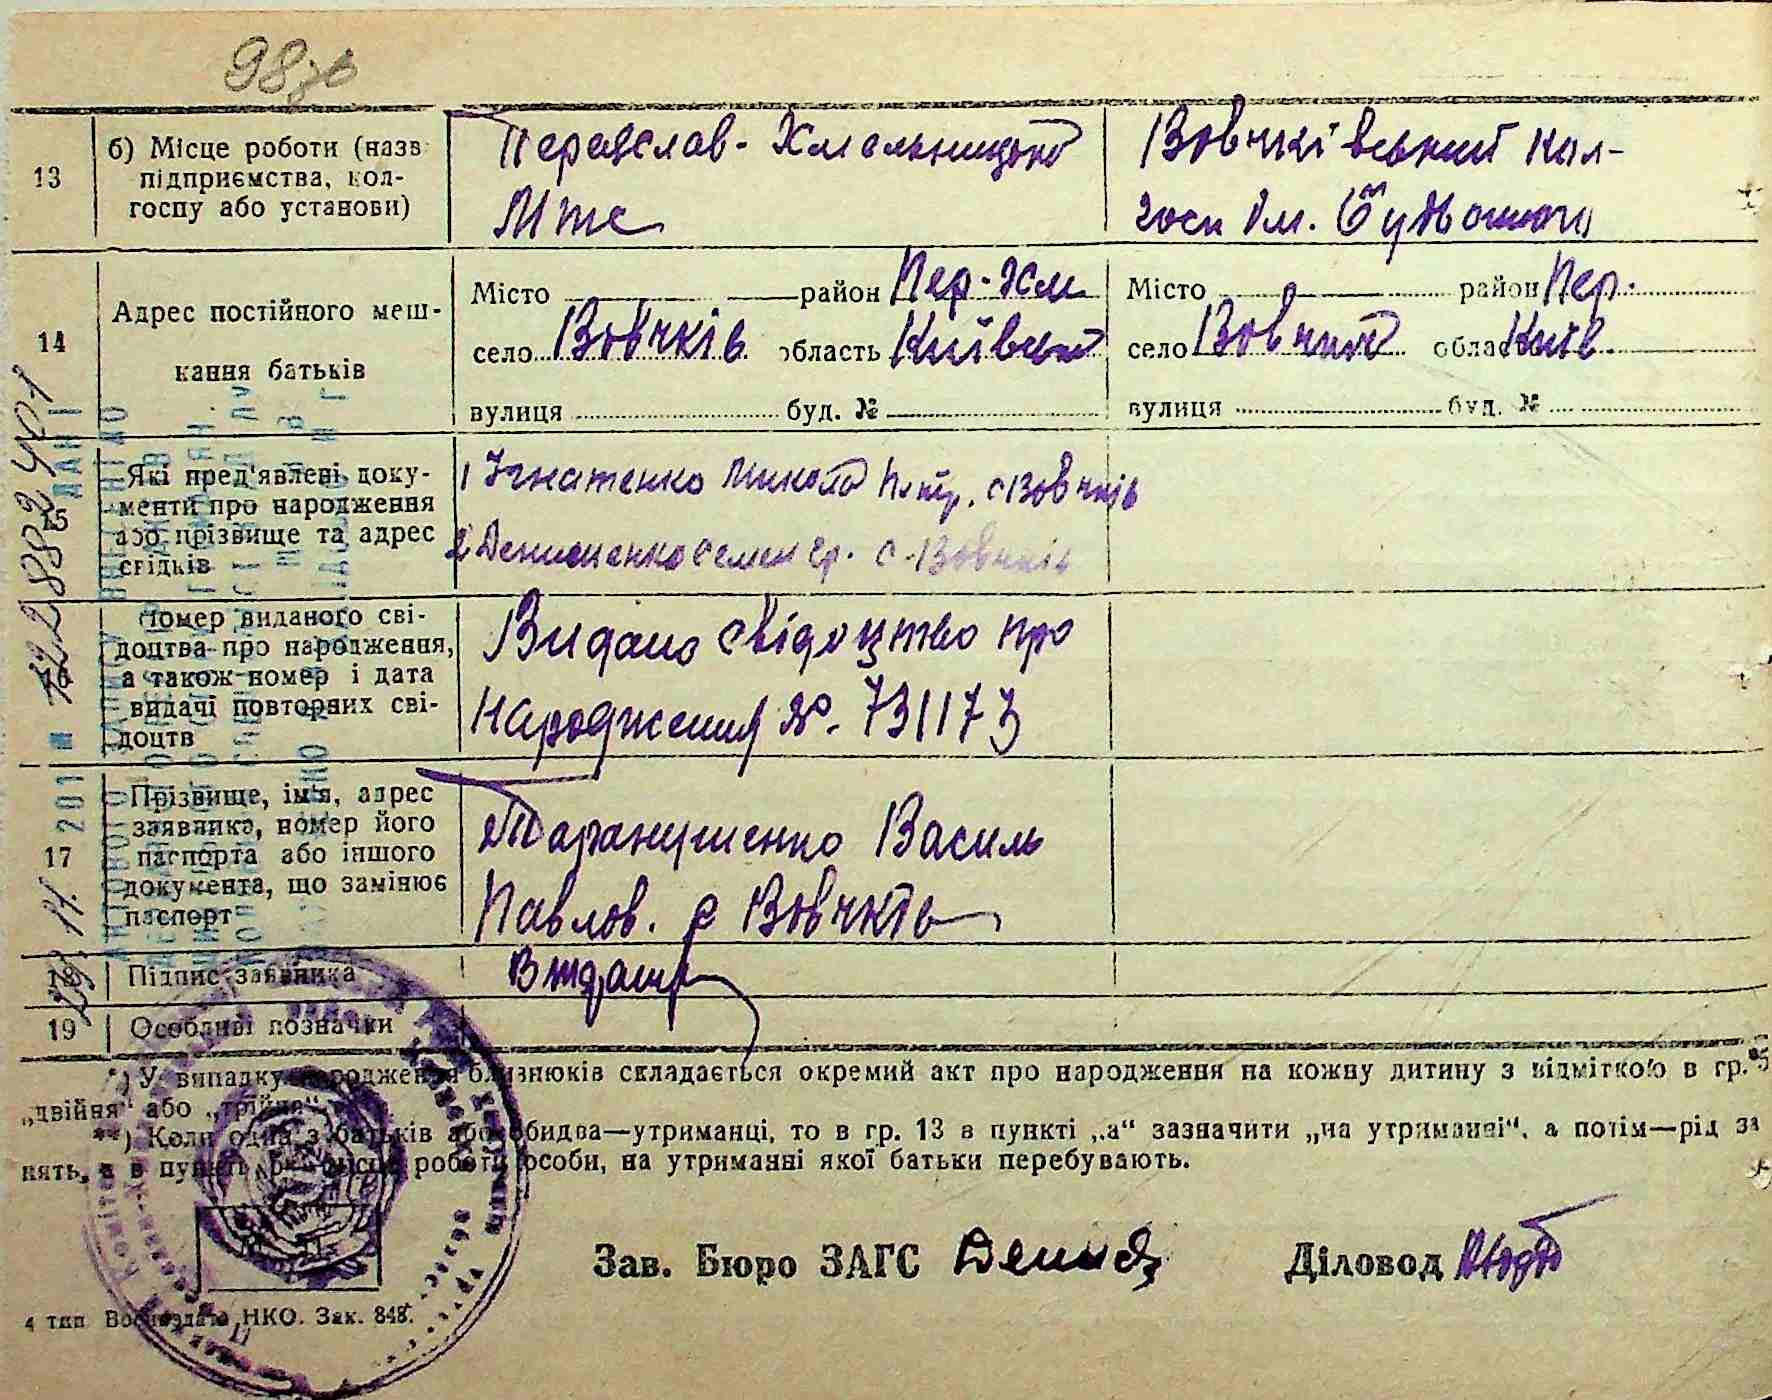 98зв
13
б) Місце роботи (назв
підприємства, кол-
госпу або установи)
Переяслав-Хмельницької
Мтс
Вовчківський кол-
госп їм. Будьонного
14
Адрес постійного меш-
кання батьків
Місто район Пер-Хм
село Вовчків область Київської
вулиця буд. №
Місто район Пер.
село Вовчків область Київ.
вулиця буд. №
15
Які пред'явлені доку-
менти про народження
або прізвище та адрес
свідків
1 Ігнатенко Микола Петр. с Вовчків
2 Денисенко Семен Гр. с. Вовчків
16
Номер виданого сві-
доцтва про народження,
а також номер і дата
видачі повторних сві-
доцтв
Видано свідоцтво про
народження №. 731173
17
Прізвище, ім'я, адрес
заявника, номер його
паспорта або іншого
документа, що замінює
паспорт
Таранушенко Василь
Павлов. с Вовчків
18
Підпис заявника
19
Особливі позначки
*) У випадку народження близнюків складається окремий акт про народження на кожну дитину з відміткою в гр. 5
„двійня" або „трійня".
**) Коли один з батьків або обидва—утриманці, то в гр. 13 в пункті „а" зазначити „на утриманні", а потім—рід за
нять, а в пункті роботи особи, на утриманні якої батьки перебувають.
Зав. Бюро ЗАГС
Діловод
4 тип Воениздата НКО. Зак. 848.